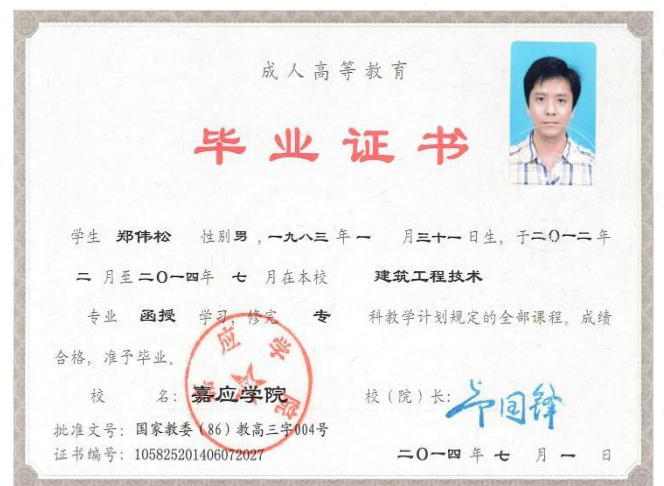 成人高等教育
毕业证书
学生 郑伟松 性别男，一九八三年一 月三十一日生，于二〇一二年
二 月至二〇一四年 七 月在本校 建筑工程技术
专业 函授 学习 修完 专 科教学计划规定的全部课程，成绩
合格，准予毕业。
校 名：嘉应学院 校（院）长：
嘉应学院
批准文号：国家教委（86）教高三字004号
证书编号：105825201406072027 二〇一四年 七 月 一 日